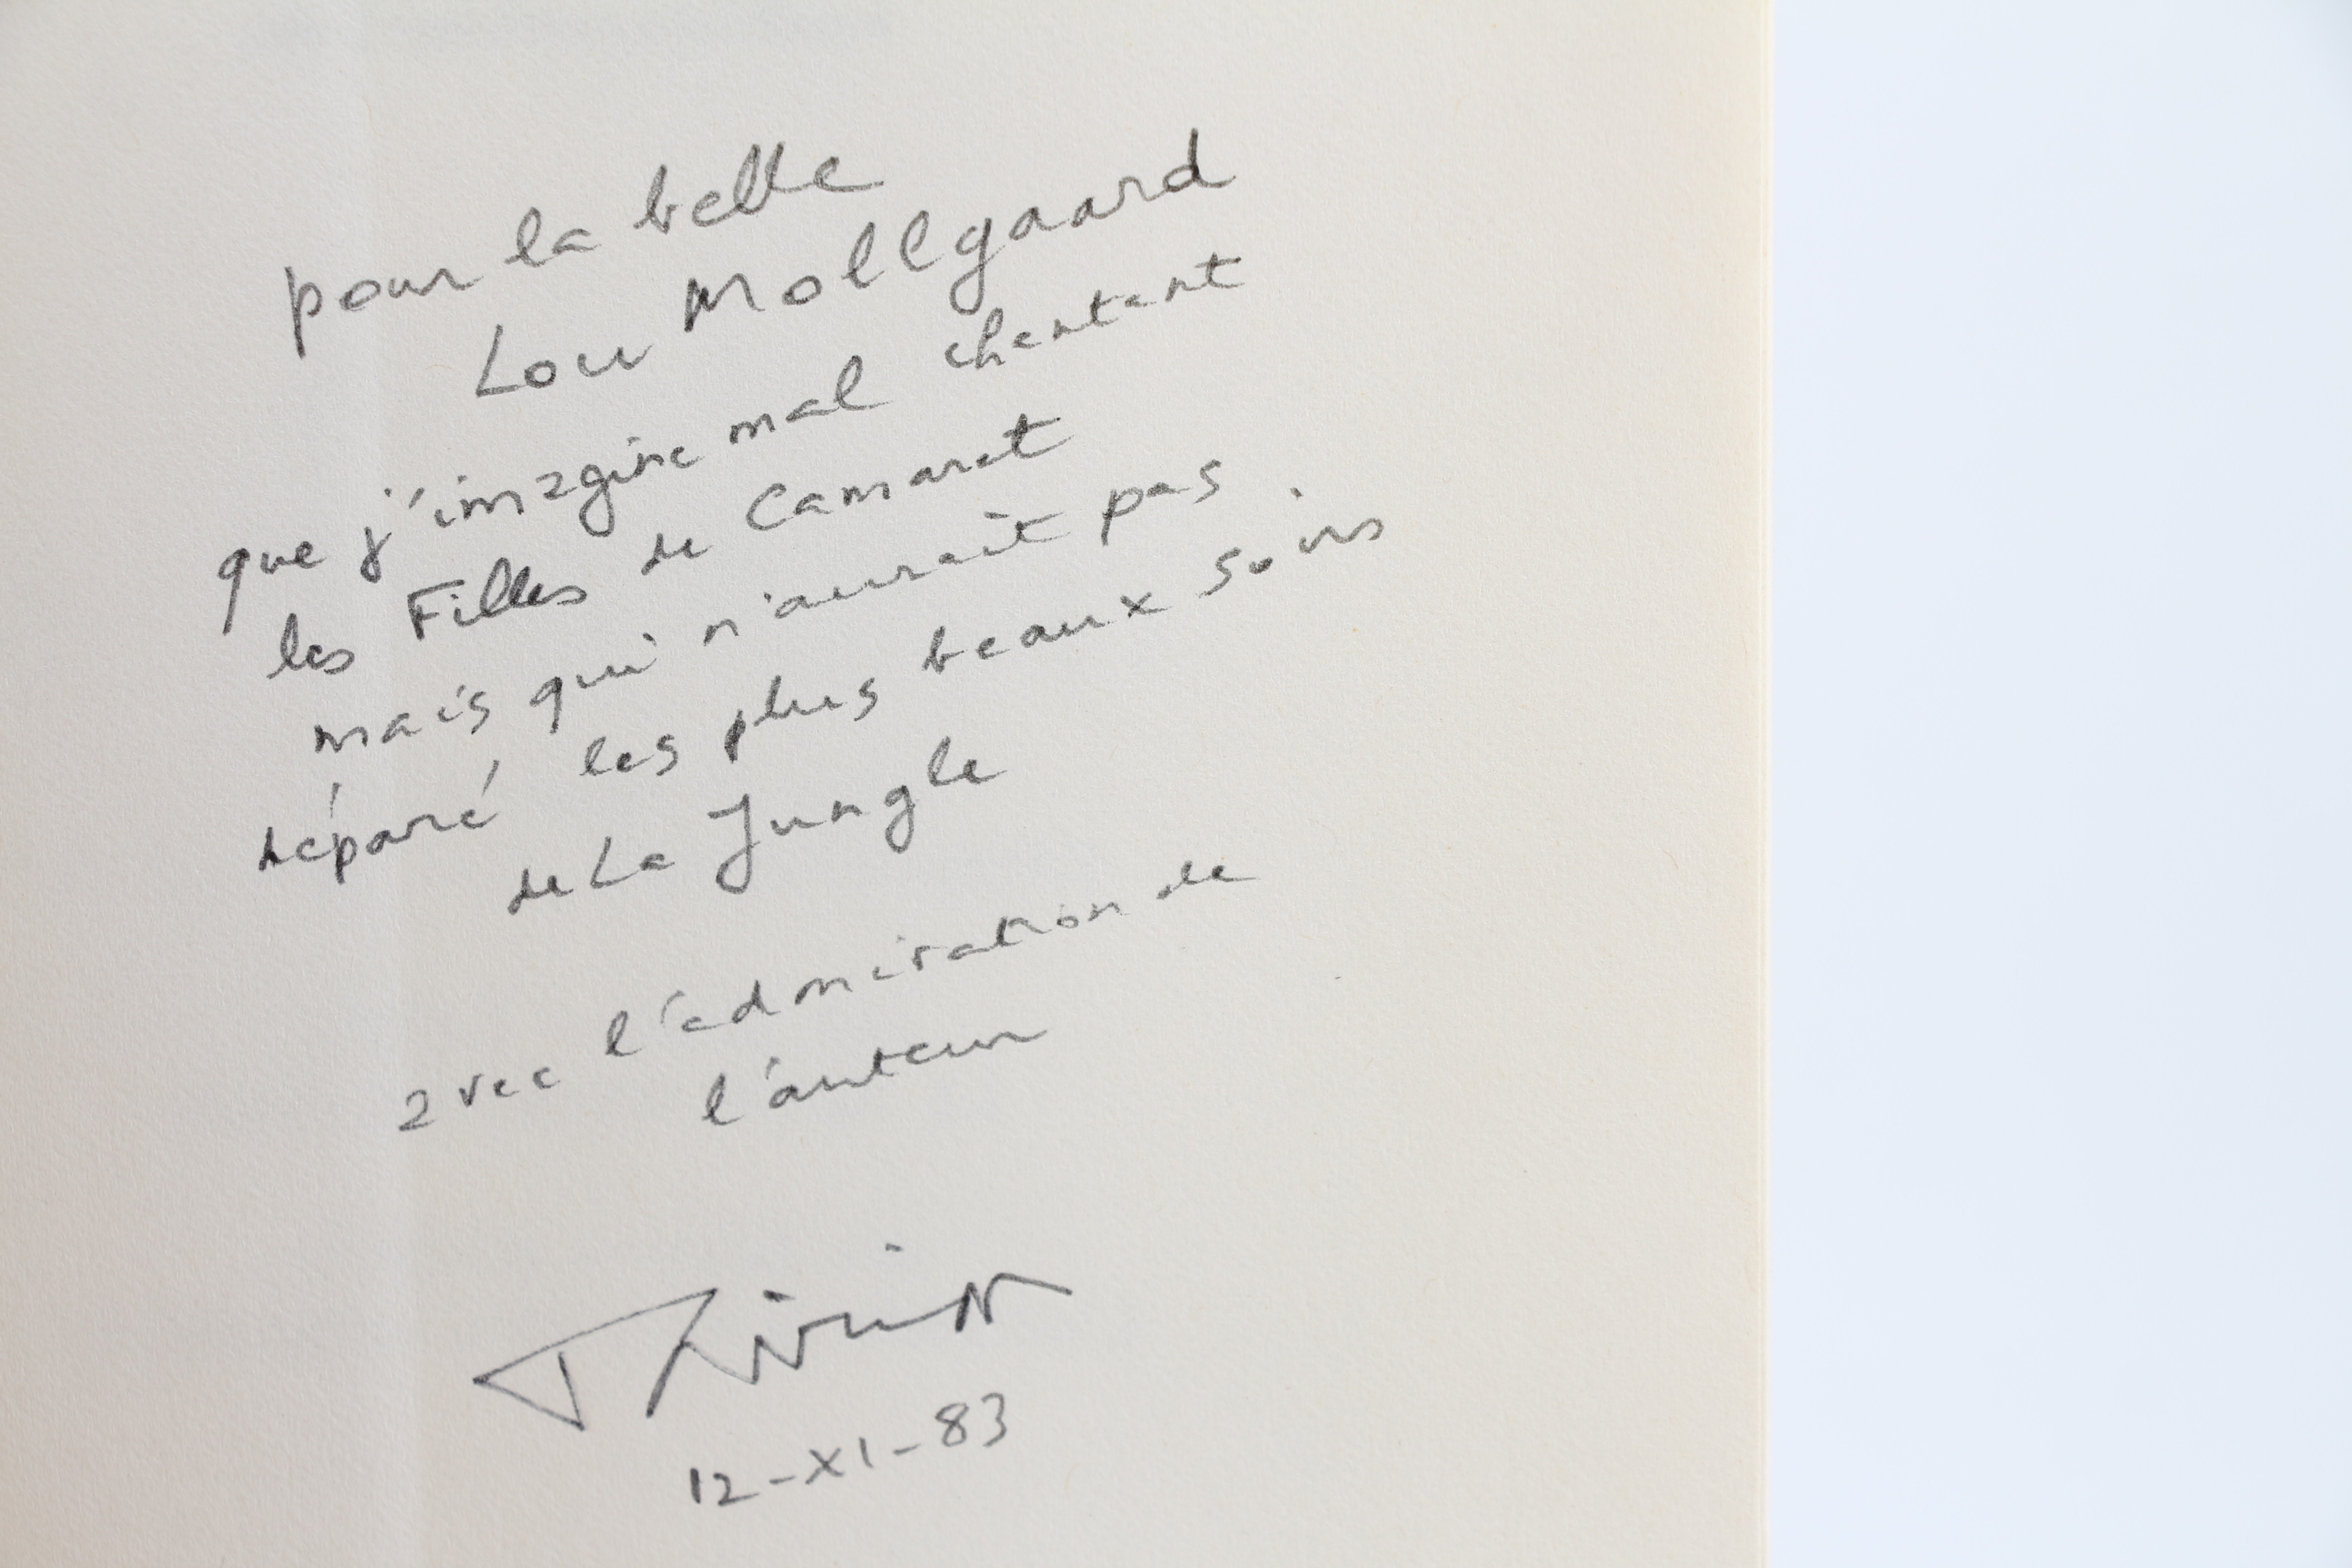 pour la belle
Lou Mollgaard
que j'imagine mal chantant
les Filles de Camaret
mais qui n'aurait pas
déparé les plus beaux soirs
de La Jungle
avec l'admiration de
l'auteur
12-XI-83